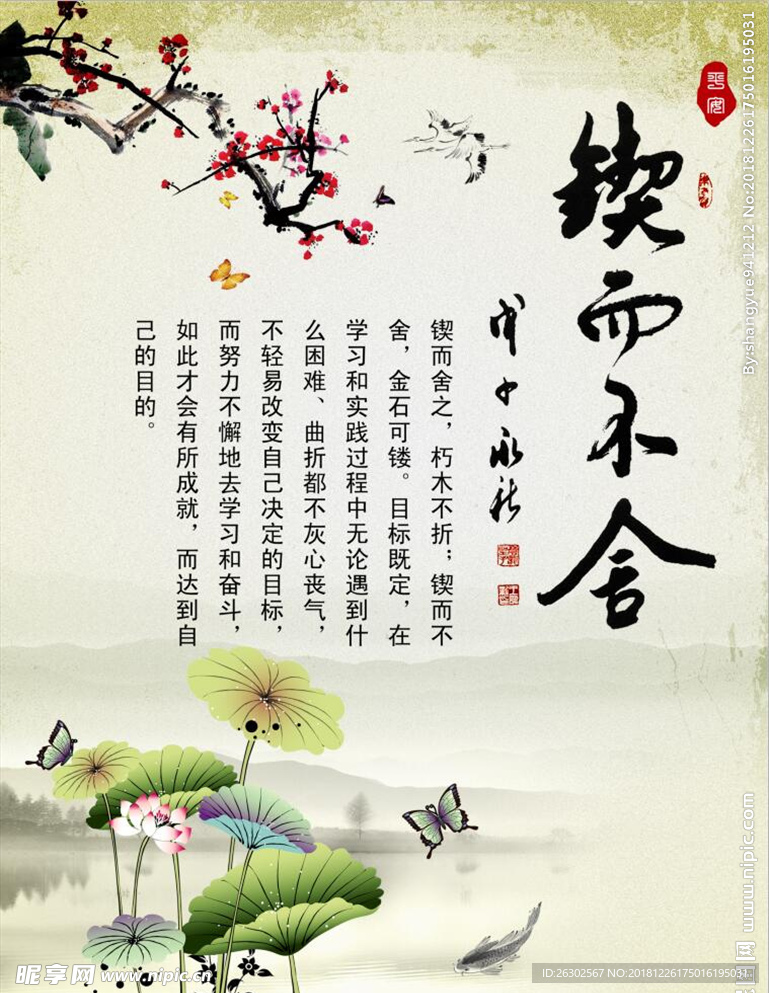 锲而不舍
戊子永秋
锲而舍之，朽木不折；锲而不
舍，金石可镂。目标既定，在
学习和实践过程中无论遇到什
么困难、曲折都不灰心丧气，
不轻易改变自己决定的目标，
而努力不懈地去学习和奋斗，
如此才会有所成就，而达到自
己的目的。
By:shangyue941212 No:20181226175016195031
昵享网 www.nipic.com
昵享网 www.nipic.cn
ID:26302567 NO:20181226175016195031